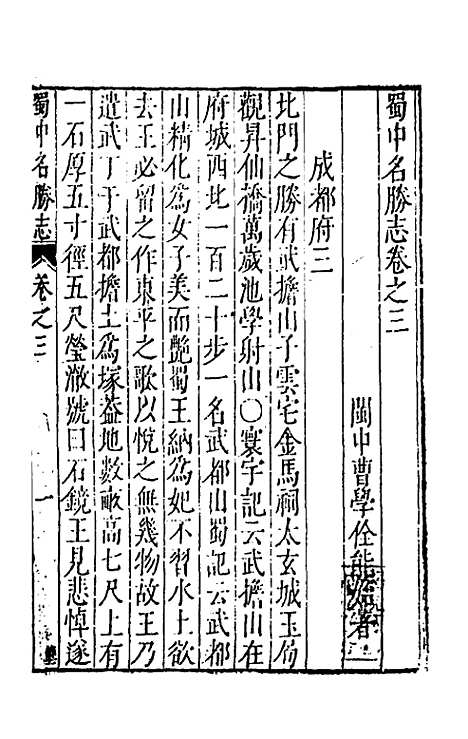 蜀中名勝志卷之三
閩中曹學佺能始著
成都府三
北門之勝有武擔山子雲宅金馬祠太玄城玉局
觀昇仙橋萬歲池學射山〇寰宇記云武擔山在
府城西北一百二十步一名武都山蜀記云武都
山精化爲女子美而艷蜀王納爲妃不習水土欲
去王必留之作東平之歌以悅之無幾物故王乃
遣武丁于武都擔土爲塚蓋地數畝高七尺上有
一石厚五寸徑五尺瑩澈號曰石鏡王見悲悼遂
蜀中名勝志 卷之三 一